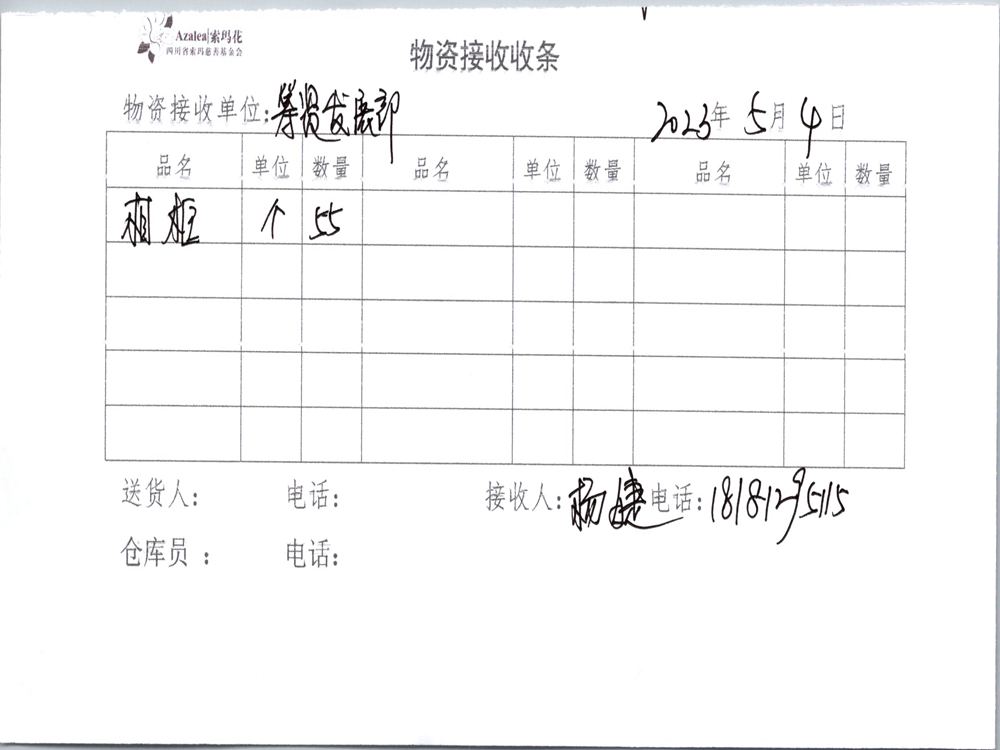 Azalea|索玛花
四川省索玛慈善基金会
物资接收收条
物资接收单位:筹资发展部 2023年5月4日
品名 单位 数量 品名 单位 数量 品名 单位 数量
相框 个 55
送货人: 电话: 接收人:杨婕 电话:18181295115
仓库员: 电话: